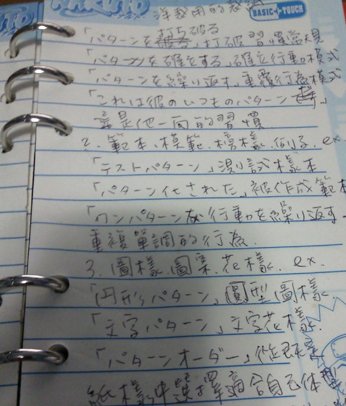 NARUTO
BASIC TOUCH
「パターンを打ち破る
打破習慣常規
「パターンを確立する」確立行動模式
「パターンを繰り返す」重覆行為模式
「これは彼のいつものパターン
這是他一向的習慣
2. 範本.模範.樣樣. ex
「テストパターン」測試樣本
「パターン化された」被作成範本
「ワンパターンな行動を繰り返す
重複單調的行為
3. 圖樣.圖案.花樣. ex.
「円形パターン」圓型圖樣
「文字パターン」文字花樣.
「パターンオーダー」
紙樣中選擇適合自己体型